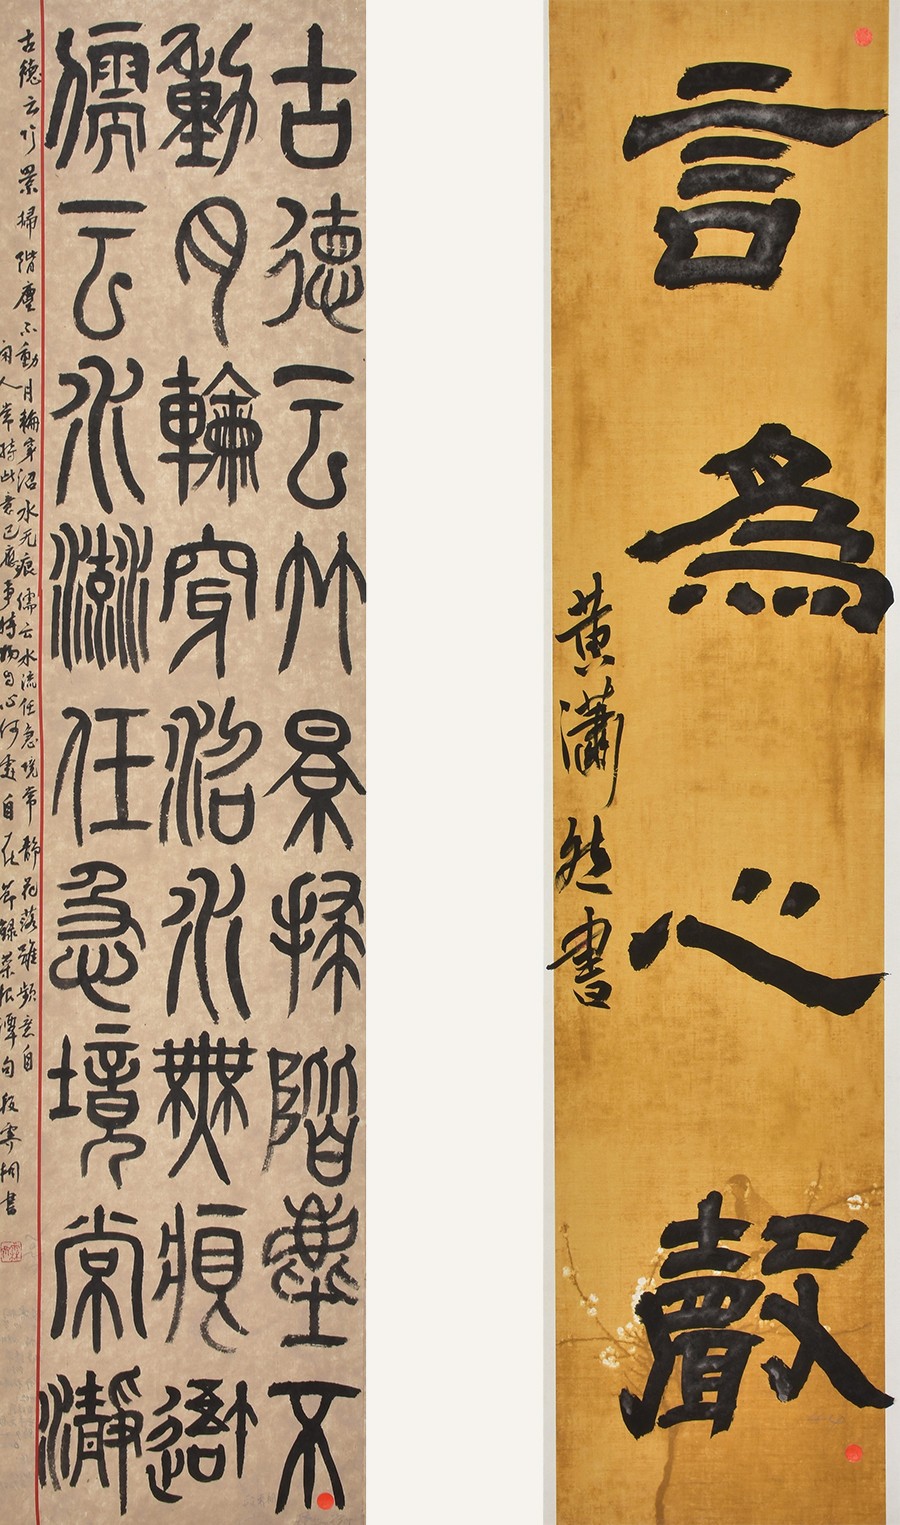 言為心聲
黃瀟然書
古德云竹景掃階塵不
動月輪穿沼水無痕吾
儒云水流任急境常靜
古德云竹景掃階塵不動月輪穿沼水无痕儒云水流任急境常靜花落雖頻意自
閑人常持此意已應事接物身心何自在節錄菜根譚句書